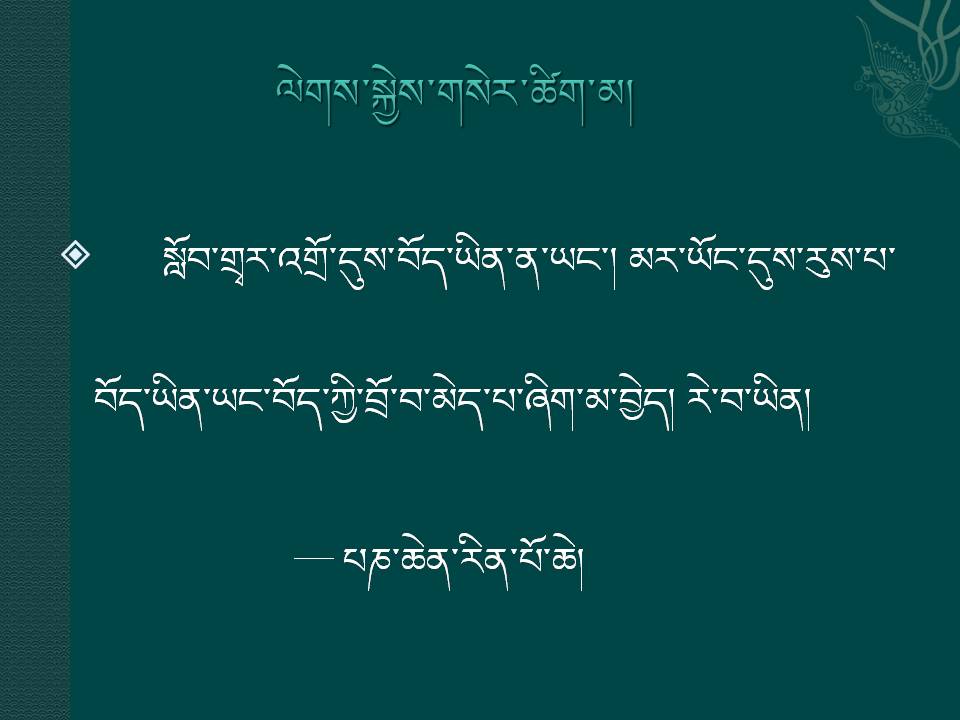 ལེགས་སྐྱེས་གསེར་ཚིག་མ།
སློབ་གྲྭར་འགྲོ་དུས་བོད་ཡིན་ན་ཡང་། མར་ཡོང་དུས་རུས་པ་
བོད་ཡིན་ཡང་བོད་ཀྱི་བྲོ་བ་མེད་པ་ཞིག་མ་བྱེད། རེ་བ་ཡིན།
— པཎ་ཆེན་རིན་པོ་ཆེ།